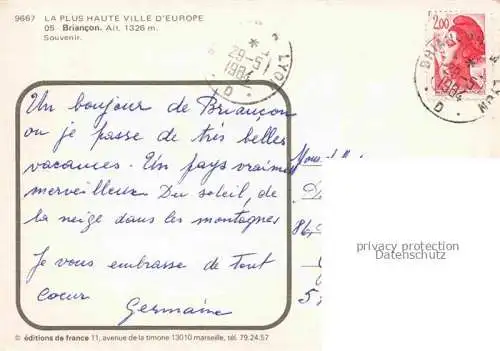 9667 LA PLUS HAUTE VILLE D'EUROPE
05 Briançon. Alt. 1326 m.
Souvenir.
2,00
29-5
1984
LYON
Un bonjour de Briançon
ou je passe de très belles
vacances. Un pays vraiment
merveilleux Du soleil, de
la neige dans les montagnes
Je vous embrasse de tout
coeur
Germaine
86,
privacy protection
Datenschutz
© éditions de france 11, avenue de la timone 13010 marseille, tél. 79.24.57